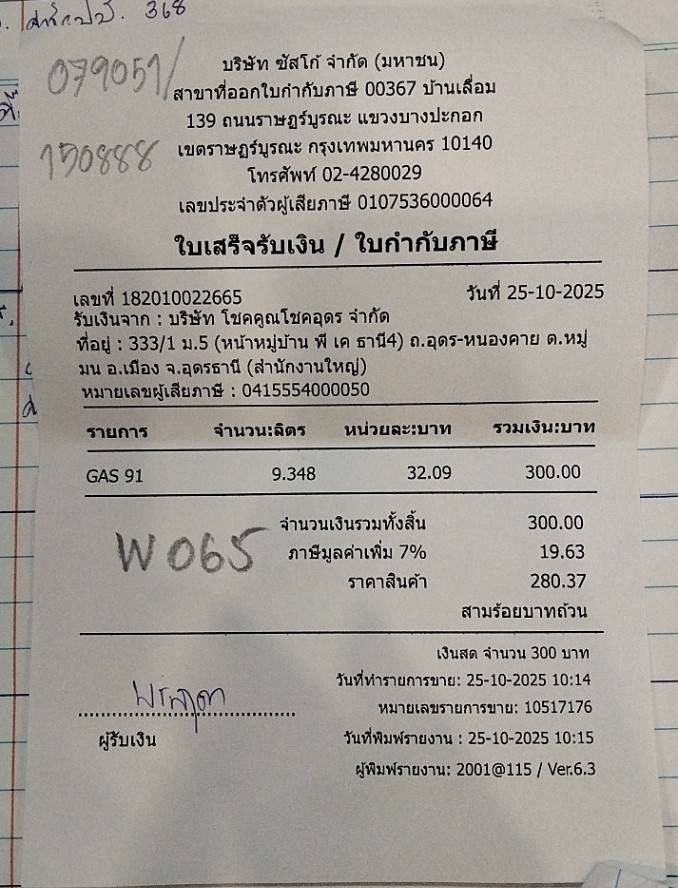 368
079051/
150888
บริษัท ซัสโก้ จำกัด (มหาชน)
สาขาที่ออกใบกำกับภาษี 00367 บ้านเลื่อม
139 ถนนราษฎร์บูรณะ แขวงบางปะกอก
เขตราษฎร์บูรณะ กรุงเทพมหานคร 10140
โทรศัพท์ 02-4280029
เลขประจำตัวผู้เสียภาษี 0107536000064
ใบเสร็จรับเงิน / ใบกำกับภาษี
เลขที่ 182010022665 วันที่ 25-10-2025
รับเงินจาก : บริษัท โชคคูณโชคอุดร จำกัด
ที่อยู่ : 333/1 ม.5 (หน้าหมู่บ้าน พี เค ธานี4) ถ.อุดร-หนองคาย ต.หมู
มน อ.เมือง จ.อุดรธานี (สำนักงานใหญ่)
หมายเลขผู้เสียภาษี : 0415554000050
รายการ จำนวน:ลิตร หน่วยละ:บาท รวมเงิน:บาท
GAS 91 9.348 32.09 300.00
จำนวนเงินรวมทั้งสิ้น 300.00
ภาษีมูลค่าเพิ่ม 7% 19.63
W065
ราคาสินค้า 280.37
สามร้อยบาทถ้วน
เงินสด จำนวน 300 บาท
วันที่ทำรายการขาย: 25-10-2025 10:14
หมายเลขรายการขาย: 10517176
ผู้รับเงิน
วันที่พิมพ์รายงาน : 25-10-2025 10:15
ผู้พิมพ์รายงาน: 2001@115 / Ver.6.3